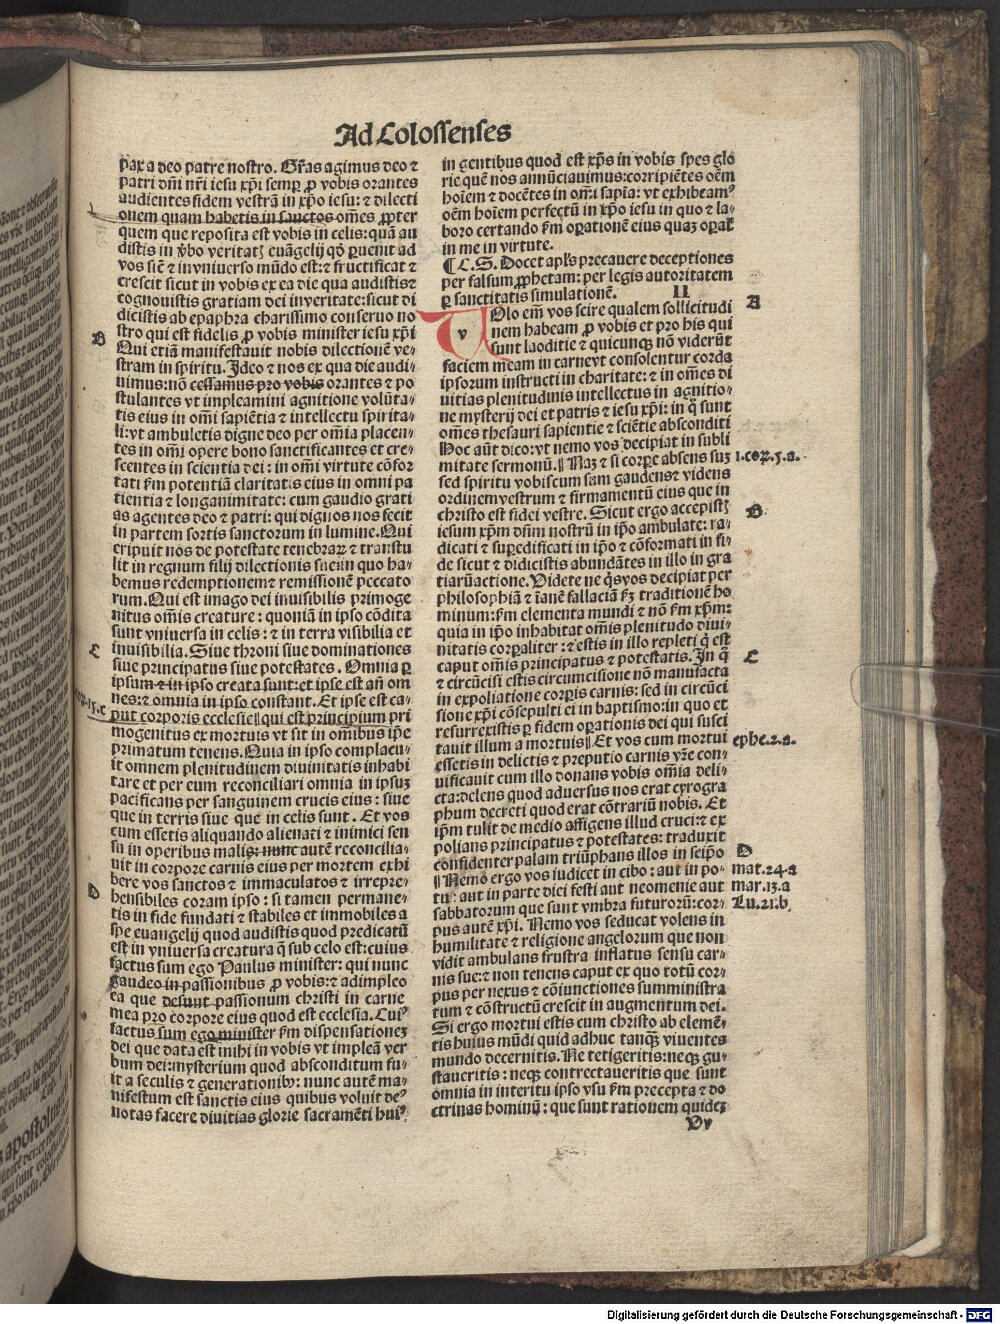 Ad Colossenses
pax a deo patre nostro. Gr̃as agimus deo ⁊
patri dñi nr̃i iesu xp̃i semꝑ ꝓ vobis orantes
audientes fidem vestrã in xp̃o iesu: ⁊ dilecti
onem quam habetis in sanctos om̃es ꝓpter
quem que reposita est vobis in celis: quã au
distis in ṽbo veritatꝭ euãgelij qḋ ꝑuenit ad
vos sic̃ ⁊ invniuerso mũdo est: ⁊ fructificat ⁊
crescit sicut in vobis ex ea die qua audistis ⁊
cognouistis gratiam dei inveritate: sicut di
dicistis ab epaphra charissimo conseruo no
stro qui est fidelis ꝓ vobis minister iesu xp̃i
B
Qui etiã manifestauit nobis dilectionẽ ve⸗
stram in spiritu. Ideo ⁊ nos ex qua die audi⸗
uimus: nõ cessamus pro vobis orantes ⁊ po
stulantes vt impleamini agnitione volũta⸗
tis eius in om̃i sapiẽtia ⁊ intellectu spirita⸗
li: vt ambuletis digne deo per om̃ia placen⸗
tes in om̃i opere bono fructificantes et cre⸗
scentes in scientia dei: in om̃i virtute cõfor
tati ẜm potentiã claritatis eius in omni pa
tientia ⁊ longanimitate: cum gaudio grati
as agentes deo ⁊ patri: qui dignos nos fecit
in partem sortis sanctorum in lumine. Qui
eripuit nos de potestate tenebraꝝ ⁊ transtu
lit in regnum filij dilectionis sue: in quo ha⸗
bemus redemptionem ⁊ remissionẽ peccato
rum. Qui est imago dei inuisibilis primoge
nitus om̃is creature: quoniã in ipso cõdita
sunt vniuersa in celis: ⁊ in terra visibilia et
C
inuisibilia. Siue throni siue dominationes
siue principatus siue potestates. Omnia ꝑ
ipsum ⁊ in ipso creata sunt: et ipse est añ om
nes: ⁊ omnia in ipso constant. Et ipse est ca⸗
put corporis ecclesie qui est principium pri
mogenitus ex mortuis vt sit in om̃ibus ip̃e
primatum tenens. Quia in ipso complacu⸗
it omnem plenitudinem diuinitatis inhabi
tare et per eum reconciliari omnia in ipsuꝫ
pacificans per sanguinem crucis eius: siue
que in terris siue que in celis sunt. Et vos
cum essetis aliquando alienati ⁊ inimici sen
su in operibus malis: nunc autẽ reconcilia⸗
uit in corpore carnis eius per mortem exhi
bere vos sanctos ⁊ immaculatos ⁊ irrepre⸗
D
hensibiles coram ipso: si tamen permane⸗
tis in fide fundati ⁊ stabiles et immobiles a
spe euangelij quod audistis quod predicatũ
est in vniuersa creatura q̃ sub celo est: cuius
factus sum ego Paulus minister: qui nunc
gaudeo in passionibus ꝓ vobis: ⁊ adimpleo
ea que desunt passionum christi in carne
mea pro corpore eius quod est ecclesia. Cuiꝰ
factus sum ego minister ẜm dispensationeꝫ
dei que data est mihi in vobis vt impleã ver
bum dei: mysterium quod absconditum fu⸗
it a seculis ⁊ generationibꝰ: nunc autẽ ma⸗
nifestum est sanctis eius quibus voluit deꝰ
notas facere diuitias glorie sacramẽti huiꝰ
in gentibus quod est xp̃s in vobis spes glo
rie quẽ nos annũciauimus: corripiẽtes oẽm
hoĩem ⁊ docẽtes in om̃i sapĩa: vt exhibeamꝰ
oẽm hoĩem perfectũ in xp̃o iesu in quo ⁊ la⸗
boro certando ẜm oꝑationẽ eius quaꝫ oꝑat̃
in me in virtute.
¶ C. S. Docet apl̃s precauere deceptiones
per falsum ꝓphetam: per legis autoritatem
ꝑ sanctitatis simulationẽ. II
A
v Olo em̃ vos scire qualem sollicitudi
nem habeam ꝓ vobis et pro his qui
sunt laoditie ⁊ quicunqꝫ nõ viderũt
faciem meam in carne vt consolentur corda
ipsorum instructi in charitate: ⁊ in om̃es di
uitias plenitudinis intellectus in agnitio⸗
ne mysterij dei et patris ⁊ iesu xp̃i: in q̃ sunt
om̃es thesauri sapientie ⁊ sciẽtie absconditi
Hoc aũt dico: vt nemo vos decipiat in subli
mitate sermonũ. Naꝫ ⁊ si corꝑe absens suꝫ
1.coꝝ.5.a.
sed spiritu vobiscum sum gaudens ⁊ videns
ordinem vestrum ⁊ firmamentũ eius que in
christo est fidei vestre. Sicut ergo accepistꝭ
B
iesum xp̃m dñm nostrũ in ip̃o ambulate: ra⸗
dicati ⁊ suꝑedificati in ip̃o ⁊ cõformati in fi⸗
de sicut ⁊ didicistis abundãtes in illo in gra
tiarũ actione. Videte ne q̃s vos decipiat per
philosophiã ⁊ inanẽ fallaciã ẜꝫ traditionẽ ho
minum: ẜm elementa mundi ⁊ nõ ẜm xp̃m:
quia in ip̃o inhabitat om̃is plenitudo diui⸗
nitatis corꝑaliter: ⁊ estis in illo repleti q̃ est
caput om̃is principatus ⁊ potestatis. In q̃
C
⁊ circũcisi estis circumcisione nõ manufacta
in expoliatione corꝑis carnis: sed in circũci
sione xp̃i cõsepulti ei in baptismo: in quo et
resurrexistis ꝑ fidem oꝑationis dei qui susci
tauit illum a mortuis Et vos cum mortui
ephe.2.a.
essetis in delictis ⁊ preputio carnis vr̃e con⸗
uificauit cum illo donans vobis om̃ia deli⸗
cta: delens quod aduersus nos erat cyrogra
phum decreti quod erat cõtrariũ nobis. Et
ip̃m tulit de medio affigens illud cruci: ⁊ ex
polians principatus ⁊ potestates: traduxit
confidenter palam triũphans illos in seip̃o
D
¶ Nemo ergo vos iudicet in cibo: aut in po⸗
mat.24.a
tu: aut in parte diei festi aut neomenie aut
mar.13.a
sabbatorum que sunt vmbra futurorũ: cor⸗
Lu.21.b.
pus autẽ xp̃i. Nemo vos seducat volens in
humilitate ⁊ religione angelorum que non
vidit ambulans frustra inflatus sensu car⸗
nis sue: ⁊ non tenens caput ex quo totũ cor⸗
pus per nexus ⁊ cõiunctiones sumministra
tum ⁊ cõstructũ crescit in augmentum dei.
Si ergo mortui estis cum christo ab elemẽ⸗
tis huius mũdi quid adhuc tanqꝫ viuentes
mundo decernitis. Ne tetigeritis: neqꝫ gu⸗
staueritis: neqꝫ contrectaueritis que sunt
omnia in interitu ipso vsu ẜm precepta ⁊ do
ctrinas hominũ: que sunt rationem quideꝫ
Dv
Digitalisierung gefördert durch die Deutsche Forschungsgemeinschaft - DFG